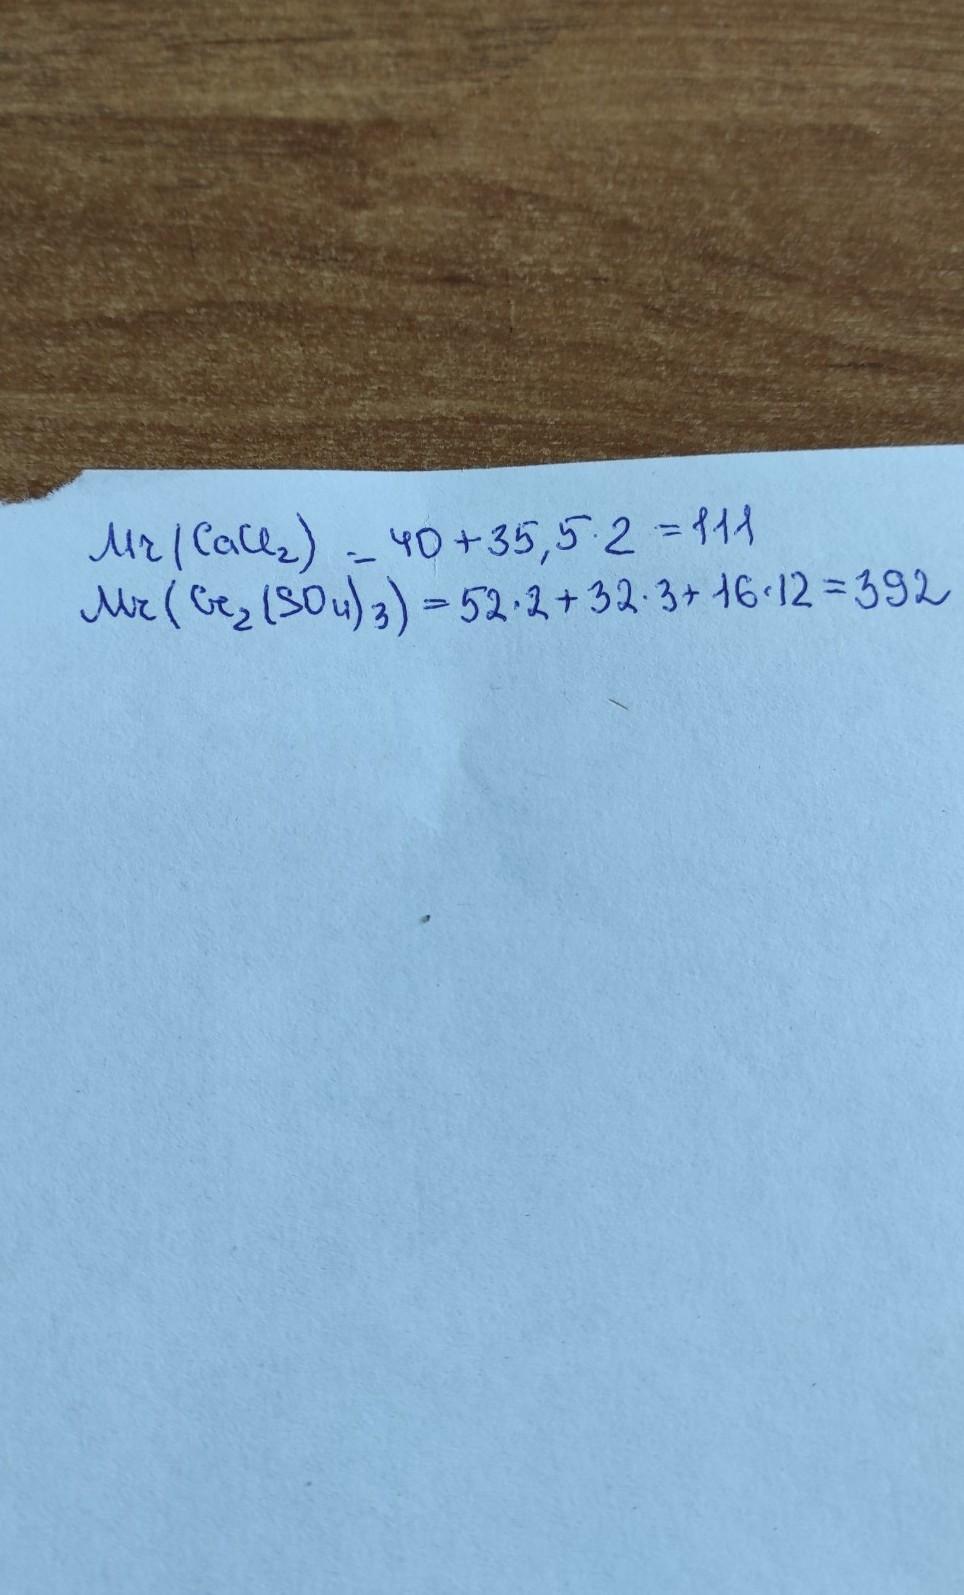 Mr(CaCl₂) = 40+35,5·2 =111
Mr(Cr₂(SO₄)₃) = 52·2+32·3+16·12=392